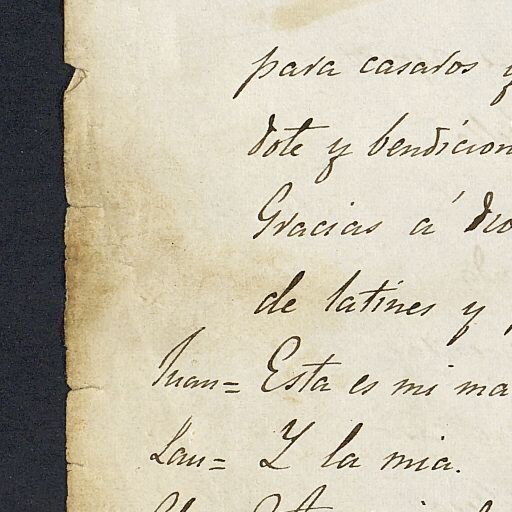 para casados y
dote y bendicion
Gracias á dio
de latines y
Juan= Esta es mi ma
Lau= Y la mia.